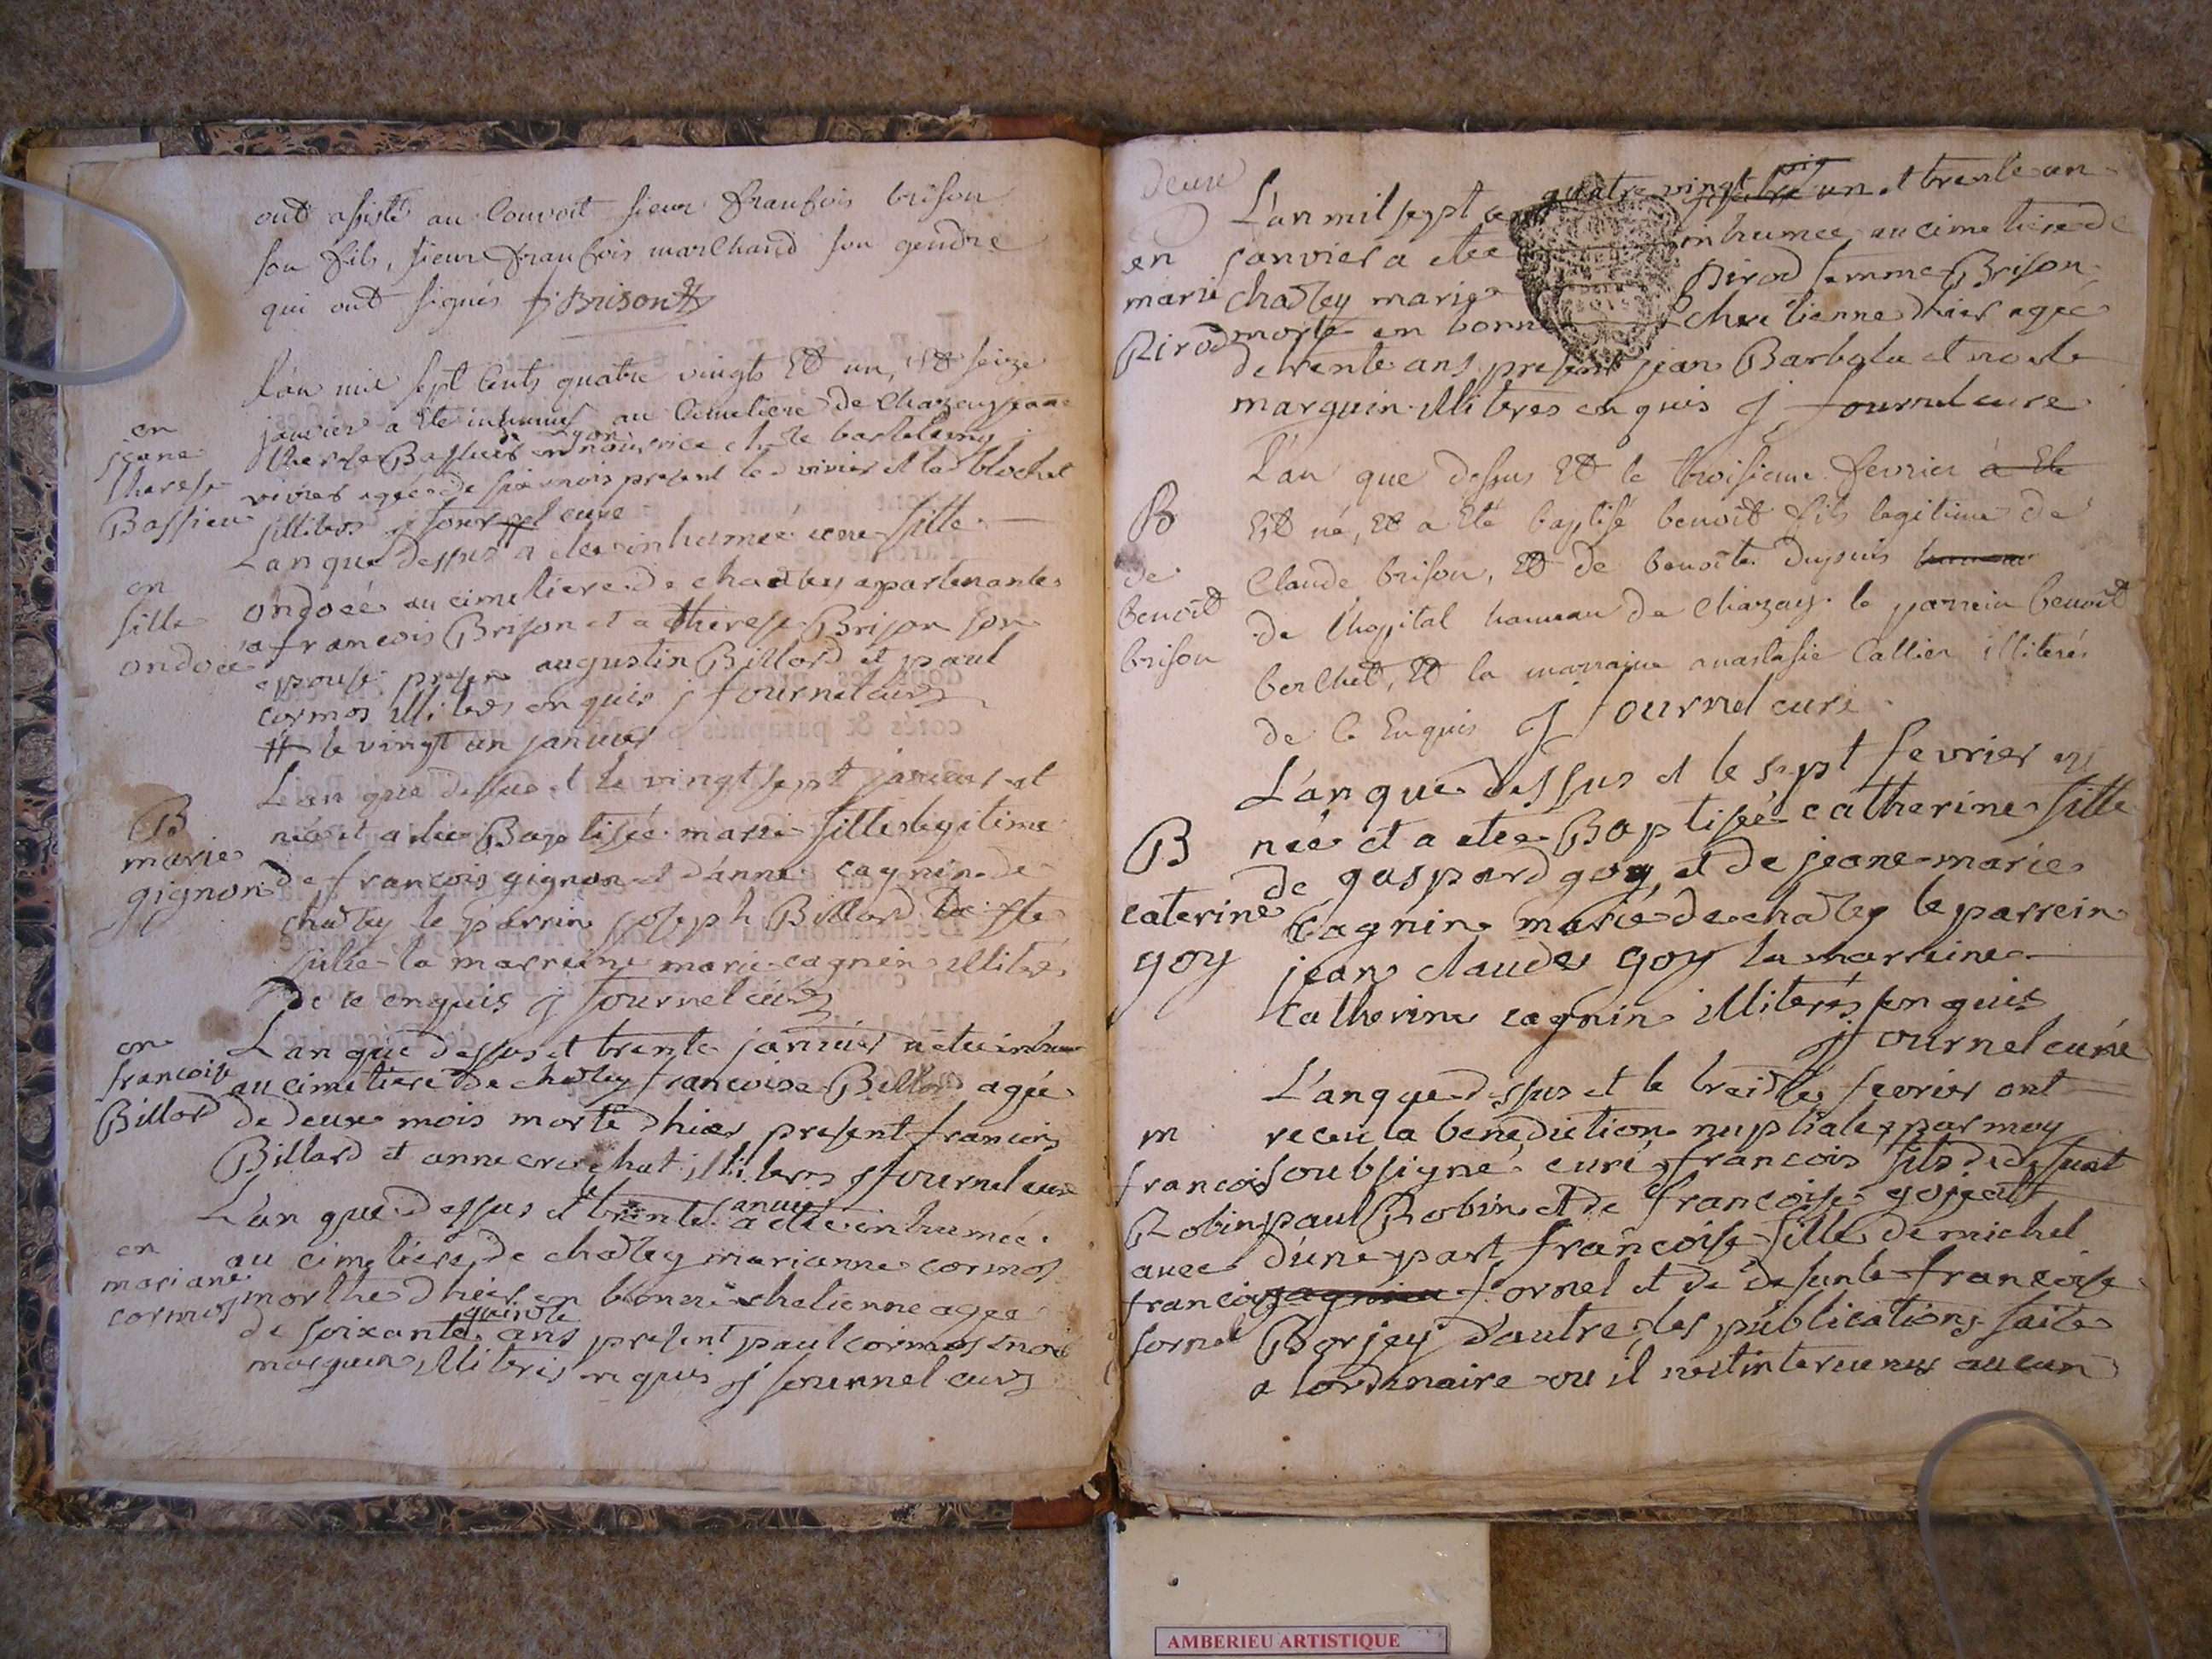 ont assisté au Convoit sieur franfois brison
son fils, sieur franfois marchand son gendre
qui ont signés f: Brison
L'an mil sept Cents quatre vingts Et un, Et seize
janvier a Ete inhumée au Cimetiere de Chazey jeane
therese Bassieu en nourrice ches barthelemy
vivier agée de six mois present led vivier et led blochet
illiteres j fournel cure
en
jeane
therese
Bassieu
L'an que dessus a etee inhumée une fille
ondoée au cimetiere de chadzey apartenante
a francois Brison et a therese Brison son
epouse presen augustin Billard et paul
cormos illiteres enquis j fournel curé
# le vingt un janvier
en
fille
ondoée
L'an que dessus et le vingt sept janvier est
née et a etee Baptisée marie fille legitime
de francois gignon et d'anne cagnin de
chadzey le parrin joseph Billard de ste
julie la marreine marie cagnin illiteres
De ce enquis j fournel curé
B
marie
gignon
L'an que dessus et trente janvier a etee inhumee
au cimetiere de chadzey francoise Billard agée
de deux mois morte dhier present francois
Billard et anne illiteres j fournel curé
en
francoise
Billard
L'an que dessus et trente janvier a etee inhumée
au cimetiere de chadzey marianne cormos
morthe dhier en bonne chretienne agee
de soixante quindze ans present paul cormos noel
marguin illiteris enquis j fournel curé
en
mariane
cormos
deux
L'an mil sept cent quatre vingt un et trente un
janvier a etee inhumee au cimetiere de
chadzey marie Pirod femme Brison
morte en bonne chretienne dhier agée
de trente ans present jean Barbolu et noel
marguin illiteres enquis j fournel cure
en
marie
Pirod
L'an que dessus Et le troisieme fevrier a Ete
Est né, Et a Eté baptisé benoit fils legitime de
Claude brison, Et de benoite dupuis hameau
de L'hopital hameau de Chazey. le parrein benoit
berchet, Et la marraine anastasie Callier illiterés
de Ce Enquis j fournel curé
B
de
benoit
brison
L'an que dessus et le sept fevrier est
née et a etee Baptisée catherine fille
de gaspard goy, et de jeane marie
Cagnin marié de chadzey le parrein
jean claude goy la marreine
Catherine cagnin illiterés enquis
j fournel curé
B
caterine
goy
L'an que dessus et le treidze fevrier ont
receu la benediction nuptiale par moy
soubsigné curé francois fils de defunt
paul Robin et de francoise gojeat
d'une part francoise fille de michel
fornel et de defunte francoise
Borjey d'autre, les publications faites
a lordinaire ou il n'est intervenus aucun
m
francois
Robin
avec
francoise
fornel
AMBERIEU ARTISTIQUE